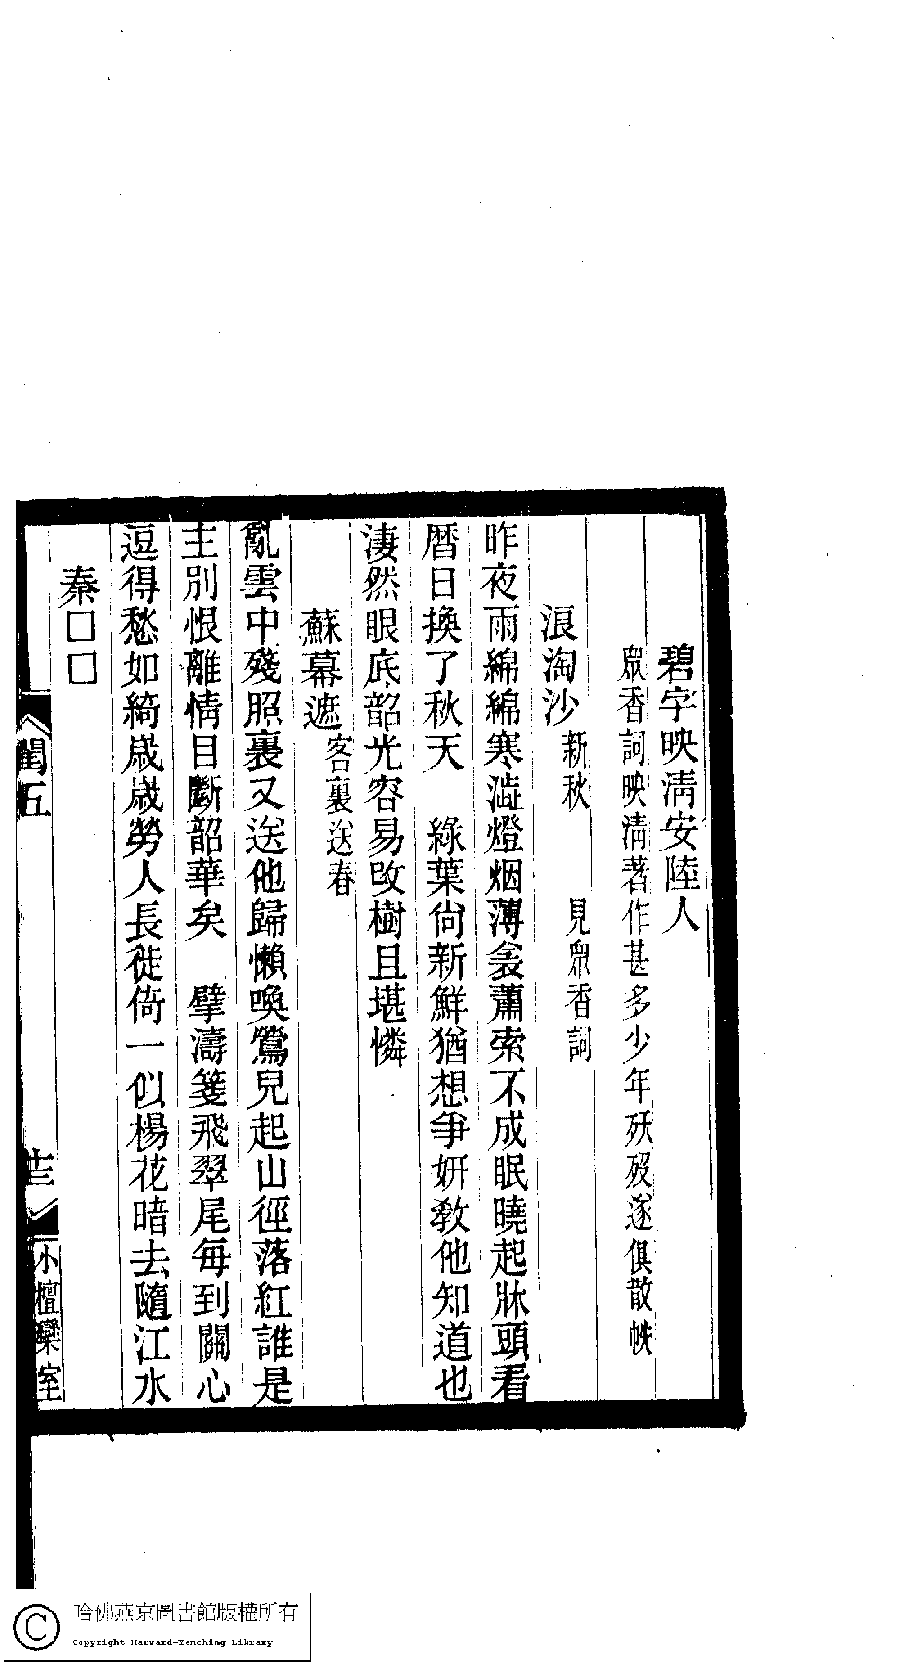 碧字映淸安陸人
眾香詞映淸著作甚多少年殀歿遂俱散帙
浪淘沙 新秋 見眾香詞
昨夜雨綿綿寒澁燈烟薄衾蕭索不成眠曉起牀頭看
曆日換了秋天 綠葉尙新鮮猶想爭妍敎他知道也
淒然眼底韶光容易改樹且堪憐
蘇幕遮 客裏送春
亂雲中殘照裏又送他歸懶喚鶯兒起山徑落紅誰是
主別恨離情目斷韶華矣 擘濤箋飛翠尾每到關心
逗得愁如綺歲歲勞人長徙倚一似楊花暗去隨江水
秦□□
閏五
十三
小檀欒室
哈佛燕京圖書館版權所有
Copyright Harvard-Yenching Library